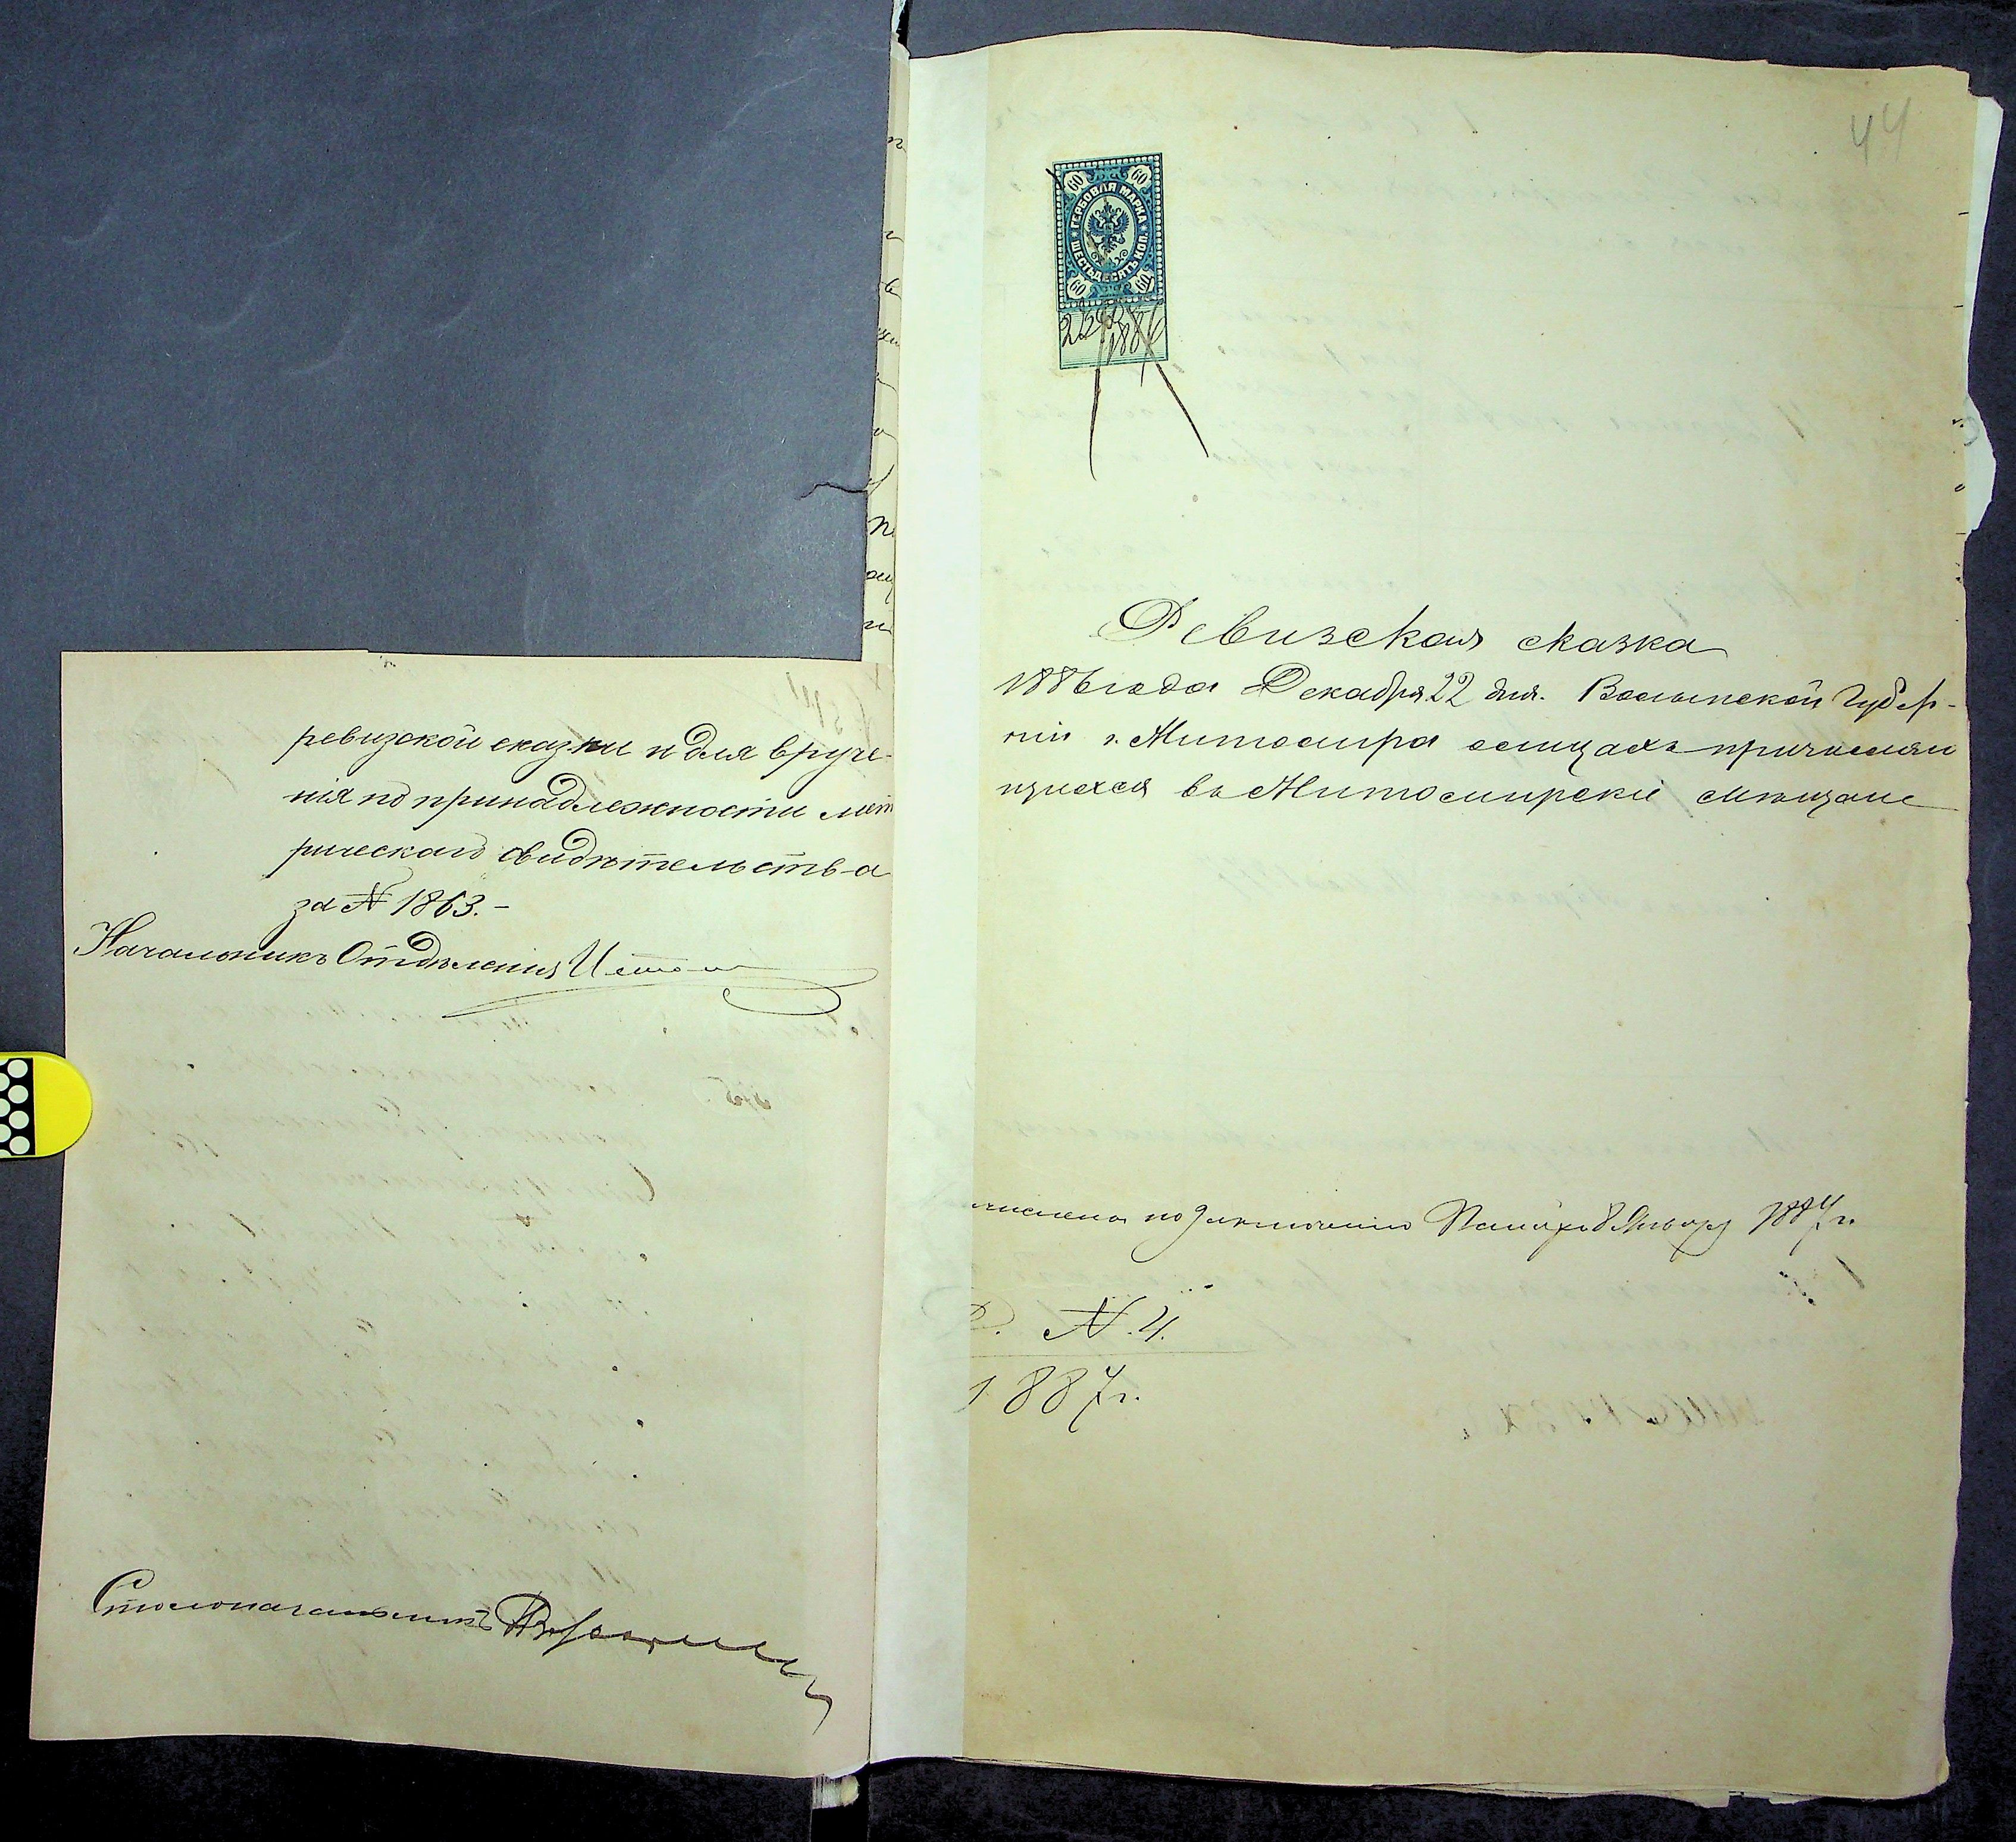 ревизской сказки и для вруче-
нія по принадлежности мет
рическаго свидѣтельства
за № 1863.-
Начальникъ Отдѣленія
Столоначальникъ
44
60 60
ГЕРБОВАЯ МАРКА
ШЕСТЬДЕСЯТЪ КОП.
60 60
1886
Ревизская сказка
1886 года Декабря 22 дня. Волынской Губер-
ніи г. Житомира о лицахъ причисляю
щихся въ Житомирскіе мѣщане
числена по 1887 г.
№. 4.
1887 г.